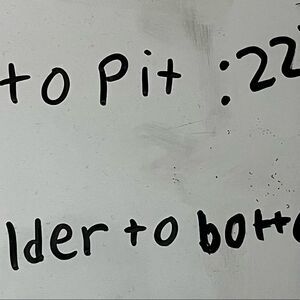 to Pit :22
lder to botto